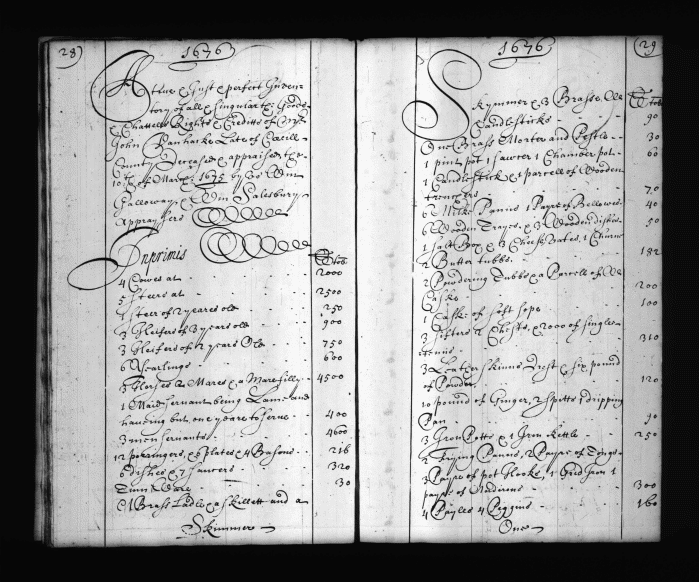 28
1676
A true & Just & perfect Inven-
tory of all & Singular ye Goods
& Chattells Rights & Creditts of Mr
John Late of Cecill
County Deceased & appraised ye
10th of March 1675 by us Wm
Galloway, & Wm Salesbury
Appraysers
Inprimis
lb tob
4 Cowes at 2000
5 Steers at 2500
1 Steer of 2 yeares old 250
3 Heifers of 3 years old 900
3 Heifers of 2 years Old 750
6 Yearlings 600
3 Horses 2 Mares & a Mare filly 4500
1 Maid servant being Lame and
haveing but one yeare to serve 400
3 men servants 4600
12 porringers, 6 plates & 4 Basons 216
6 dishes & 7 sawcers 320
30
1 Brass Ladle a Skillett and a
Skimmer
1676
29
Skymmer & 3 Brasse Old lb tob
Candlesticks 90
One Brass Morter and Pestle 30
1 pint pot 1 sawcer 1 Chamber pot 60
1 Candlestick & 1 parcell of Wooden
trenchers 70
6 Milke Panns 1 Payre of Bellowes 40
6 Wooden Trayes, & 3 Wooden dishes 50
1 Salt Box & 3 Cheese Vates, 1 Churne
2 Butter tubbs 182
2 Powdering Tubbs & a Parcell of
Caske 200
1 Caske of soft sope 100
3 sifters 2 Chests, & 2000 of single
310
3 Leather skinns Drest & six pound
of Powder 120
10 pound of Ginger, 2 Spitts 1 dripping
Pan 90
3 Iron Potts & 1 Iron Kettle 250
2 Frying Panns, 2 Payre of Tongs
3 Payre of pot Hooks, 1 Iron 1
payre of Andirons 300
4 Payles 4 Piggins 160
One